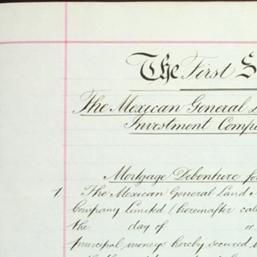 The First S
The Mexican General L
Investment Comp
Mortgage Debenture fo
1 The Mexican General Land
Company Limited (hereinafter cal
the day of or
principal moneys hereby secured